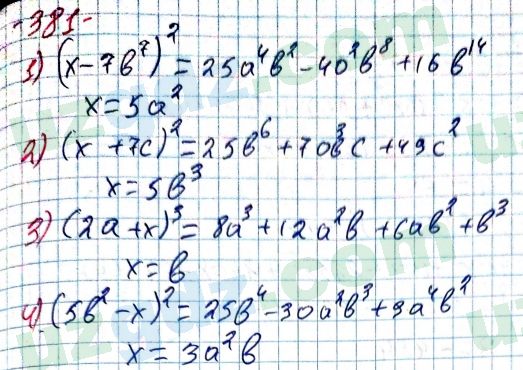 -381-
1) (x-7b⁷)² = 25a⁴b² - 40²b⁸ + 16b¹⁴
x = 5a²
2) (x + 7c)² = 25b⁶ + 70b³c + 49c²
x = 5b³
3) (2a + x)³ = 8a³ + 12a²b + 6ab² + b³
x = b
4) (5b² - x)² = 25b⁴ - 30a²b³ + 9a⁴b²
x = 3a²b